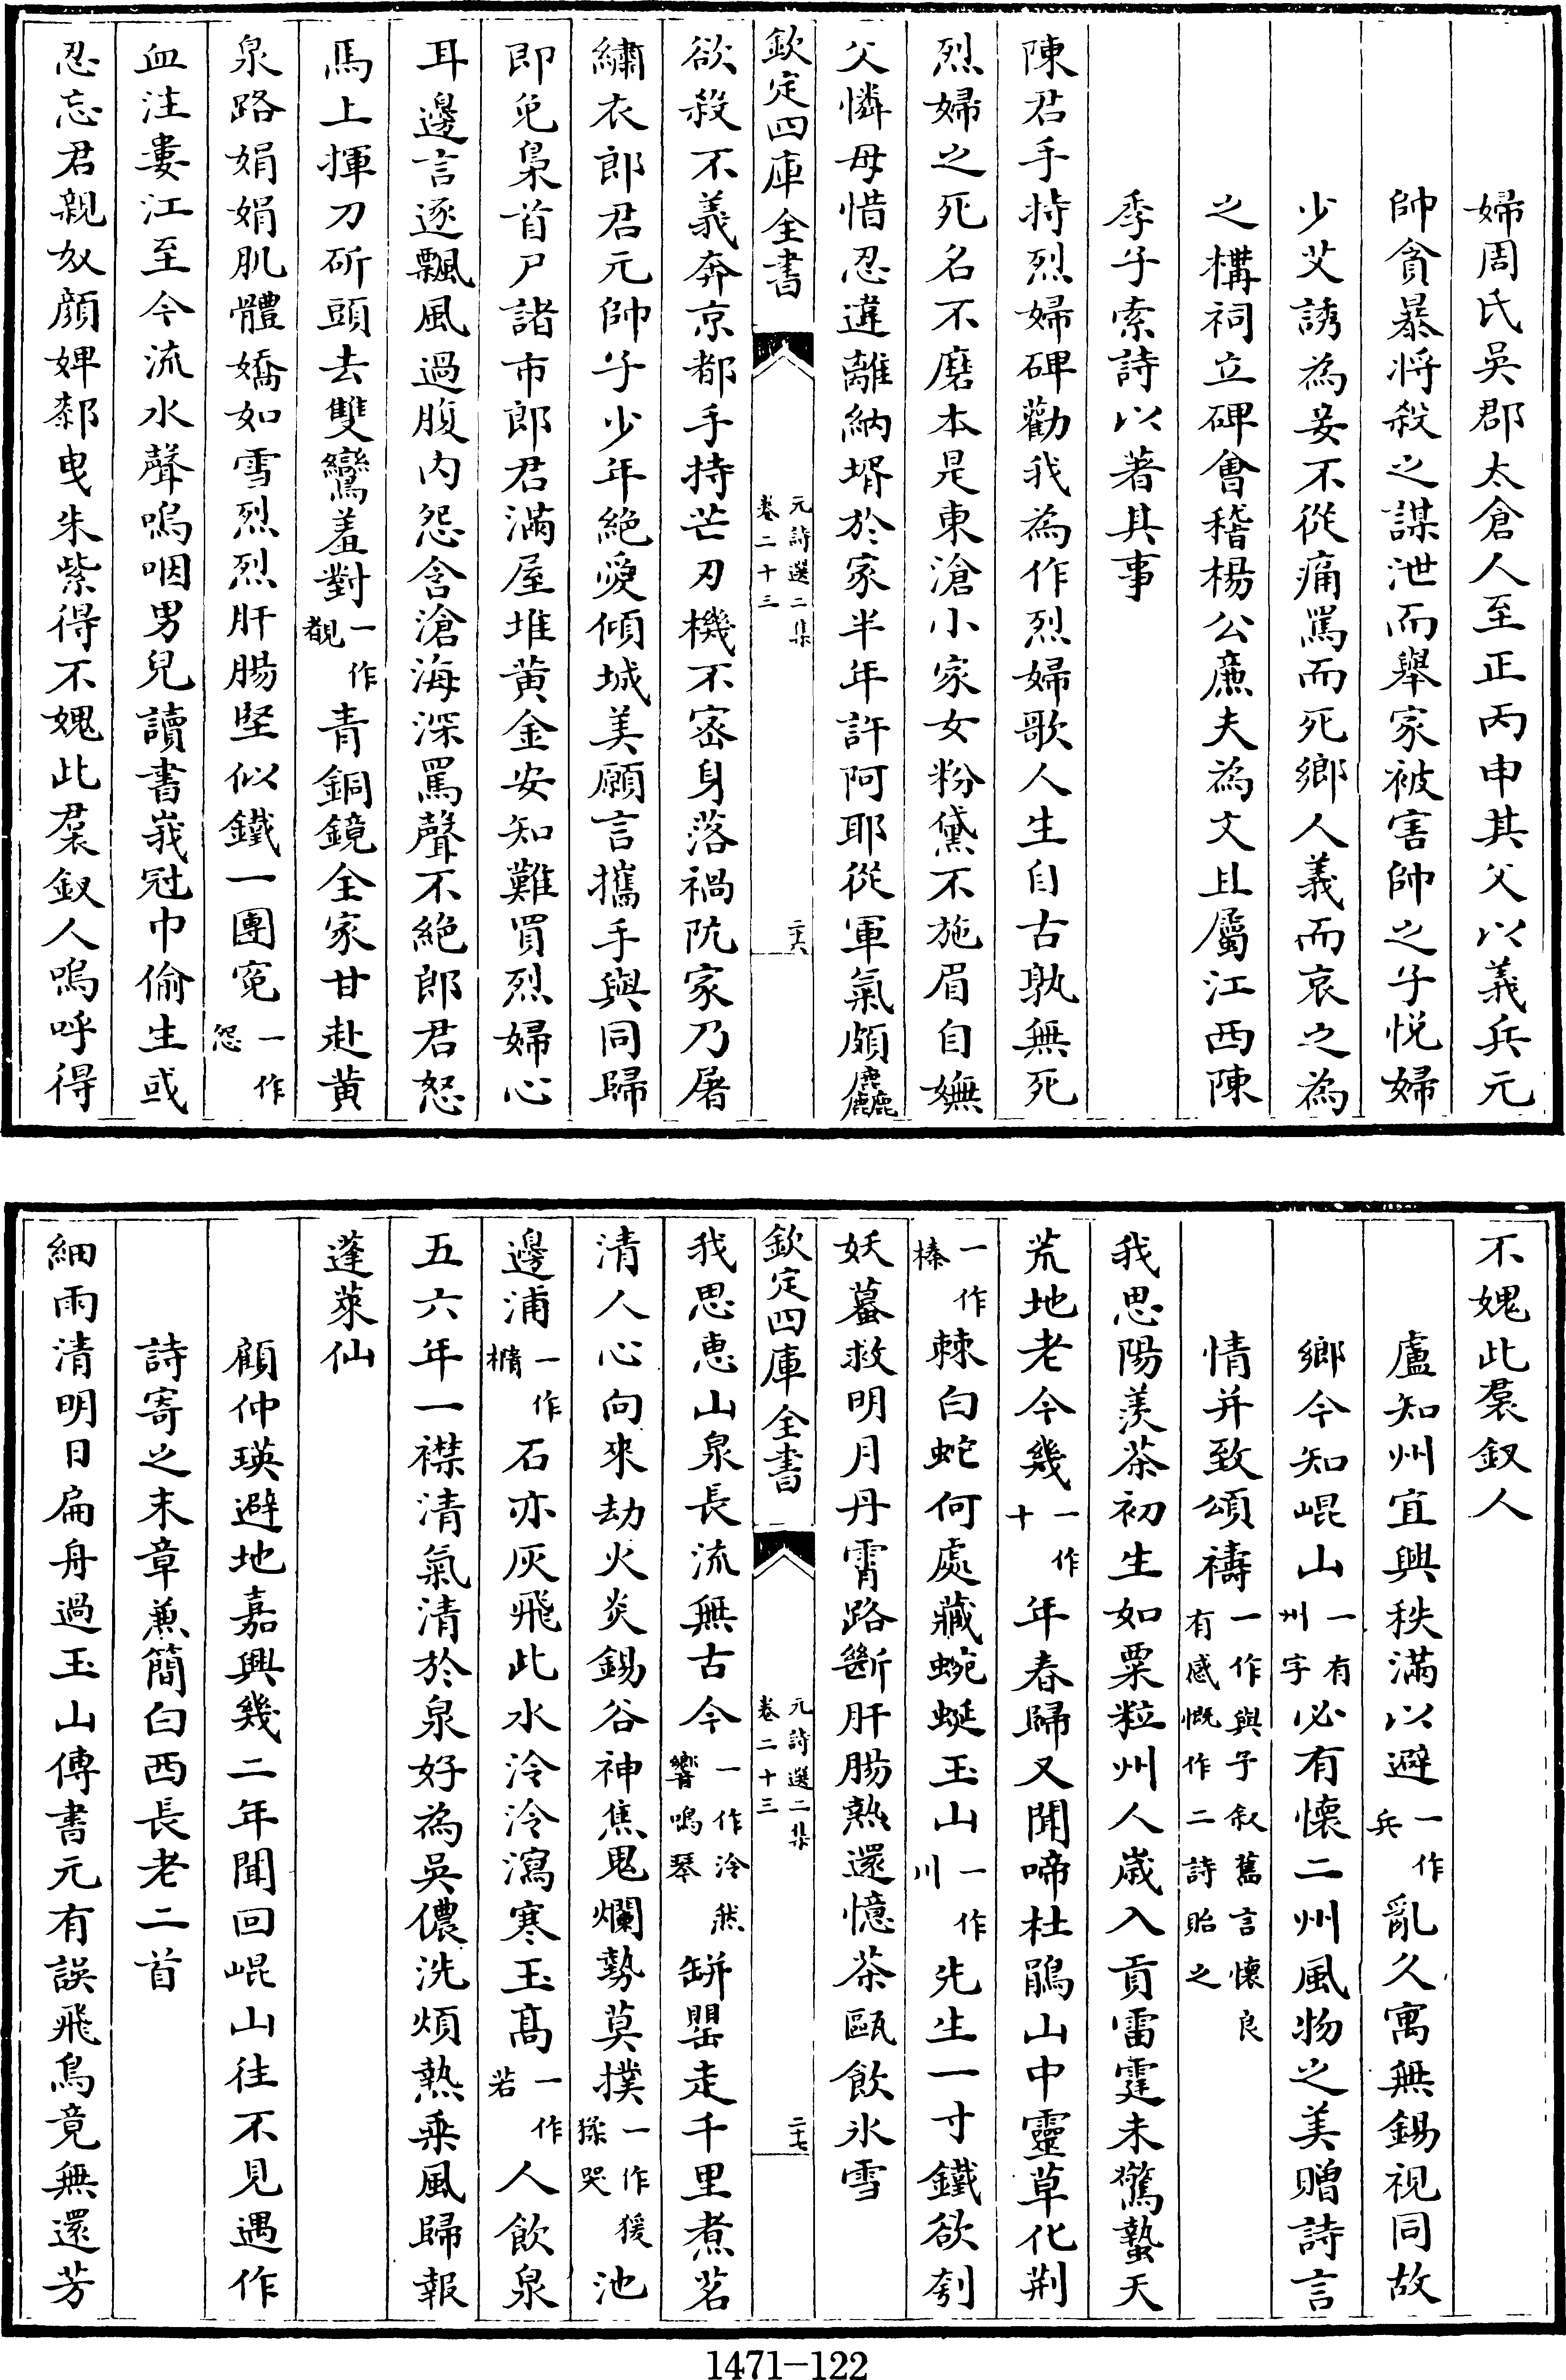 婦周氏吳郡太倉人至正丙申其父以義兵元
帥貪暴將殺之謀泄而舉家被害帥之子悅婦
少艾誘為妾不從痛罵而死鄉人義而哀之為
之構祠立碑會稽楊公廉夫為文且屬江西陳
季子索詩以著其事
陳君手持烈婦碑勸我為作烈婦歌人生自古孰無死
烈婦之死名不磨本是東滄小家女粉黛不施眉自嫵
父憐母惜忍違離納壻於家半年許阿耶從軍氣頗麤
欽定四庫全書 元詩選二集 卷二十三 二十六
欲殺不義奔京都手持芒刃機不宻身落禍阬家乃屠
繡衣郎君元帥子少年絶愛傾城美願言攜手與同歸
即免梟首尸諸市郎君滿屋堆黄金安知難買烈婦心
耳邊言逐飄風過腹内怨含滄海深罵聲不絶郎君怒
馬上揮刀斫頭去雙鸞羞對一作覩青銅鏡全家甘赴黄
泉路娟娟肌體嬌如雪烈烈肝腸堅似鐵一團寃一作怨
血注婁江至今流水聲嗚咽男兒讀書峩冠巾偷生或
忍忘君親奴顔婢郲曳朱紫得不媿此羣釵人嗚呼得
不媿此羣釵人
盧知州宜興秩滿以避一作兵亂久寓無錫視同故
鄉今知崐山一有州字必有懷二州風物之美贈詩言
情并致頌禱一作與子叙舊言懷良有感慨作二詩貽之
我思陽羡茶初生如粟粒州人歲入貢雷霆未驚蟄天
荒地老今幾一作十年春歸又聞啼杜鵑山中靈草化荆
一作榛棘白蛇何處藏蜿蜒玉山一作川先生一寸鐵欲刳
妖蟇救明月丹霄路斷肝腸熱還憶茶甌飲氷雪
欽定四庫全書 元詩選二集 卷二十三 二十七
我思惠山泉長流無古今一作泠然響鳴琴缾罌走千里煮茗
清人心向來劫火炎錫谷神焦鬼爛勢莫撲一作猨猱哭池
邊浦一作檹石亦灰飛此水泠泠瀉寒玉髙一作若人飲泉
五六年一襟清氣清於泉好為吳儂洗煩熱乗風歸報
蓬萊仙
顧仲瑛避地嘉興幾二年聞回崐山往不見遇作
詩寄之末章兼簡白西長老二首
細雨清明日扁舟過玉山傳書元有誤飛鳥竟無還芳
1471-122